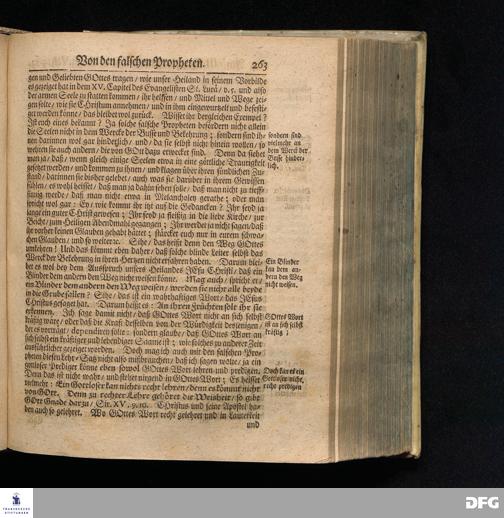 Von den falschen Propheten. 263
gen und Geliebten GOttes tragen / wie unser Heiland in seinem Vorbilde
es gezeiget hat in dem XV. Capitel des Evangelisten St. Lucä / v. 5. und also
der armen Seele zu statten kommen / ihr helffen / und Mittel und Wege zei-
gen solte / wie sie Christum annehmen / und in ihm eingewurtzelt und befesti-
get werden könne / das bleibet wol zurück. Wisset ihr dergleichen Exempel?
Ist euch eines bekannt? Ja solche falsche Propheten befördern nicht allein
die Seelen nicht in dem Wercke der Busse und Bekehrung; sondern sind ih-
nen darinnen wol gar hinderlich / und da sie selbst nicht hinein wollen / so
wehren sie auch andern / die von GOtt dazu erwecket sind. Denn da siehet
man ja / daß / wenn gleich einige Seelen etwa in eine göttliche Traurigkeit
gesetzet werden / und kommen zu ihnen / und klagen über ihren sündlichen Zu-
stand / darinnen sie bisher gelebet / auch was sie darüber in ihrem Gewissen
fühlen / es wohl heisset / daß man ja dahin sehen solle / daß man nicht zu tieff-
sinnig werde / daß man nicht etwa in Melancholey gerathe; oder man
spricht wol gar: Ey / wie kommt ihr ihr auf die Gedancken? Ihr seyd ja
lange ein guter Christ gewesen; Ihr seyd ja fleißig in die liebe Kirche / zur
Beicht / zum Heiligen Abendmahl gegangen; Ihr werdet ja nicht sagen / daß
ihr vorher keinen Glauben gehabt hättet; stärcket euch nur in eurem schwa-
chen Glauben / und so weiter. Sihe / das heist denn den Weg GOttes
umkehren! Und das kömmt eben daher / daß solche blinde Leiter selbst das
Werck der Bekehrung in ihren Hertzen nicht erfahren haben. Darum blei-
bet es wol bey dem Ausspruch unsers Heilandes JEsu Christi / daß ein
Blinder dem andern den Weg nicht weisen könne. Mag auch / spricht er /
ein Blinder dem andern den Weg weisen / werden sie nicht alle beyde
in die Grube fallen? Sihe / das ist ein wahrhafftiges Wort / das JEsus
Christus gesaget hat. Darum heist es: An ihren Früchten solt ihr sie
erkennen. Ich sage damit nicht / daß GOttes Wort nicht an sich selbst
kräftig wäre / oder daß die Kraft desselben von der Würdigkeit desjenigen /
der es vorträgt / dependiren solte: sondern glaube / daß GOttes Wort an
sich selbst ein kräftiger und lebendiger Saame ist; wie solches zu anderer Zeit
ausführlicher gezeiget worden. Doch mag ich auch mit den falschen Pro-
pheten diesen Lehr-Satz nicht also mißbrauchen / daß ich sagen wolte / ja ein
gottloser Prediger könne eben sowol GOttes Wort lehren und predigen.
Denn das ist nicht wahr / und stehet nirgend in GOttes Wort; Es heisset
vielmehr: Ein Gottloser kan nichts rechts lehren / denn es kommt nicht
von GOtt. Denn zu rechter Lehre gehöret die Weisheit / so gibt
GOtt Gnade darzu / Sir. XV, 9. 10. CHristus und seine Apostel ha-
ben auch so gelehret. Wo GOttes Wort recht gelehret und in Lauterkeit
und
sondern sind
vielmehr an
dem Werck der
Busse hinder-
lich.
Ein Blinder
kan dem an-
dern den Weg
nicht weisen.
GOttes Wort
ist an sich selbst
kräftig;
Doch kan es ein
Gottloser nicht
recht predigen
DFG